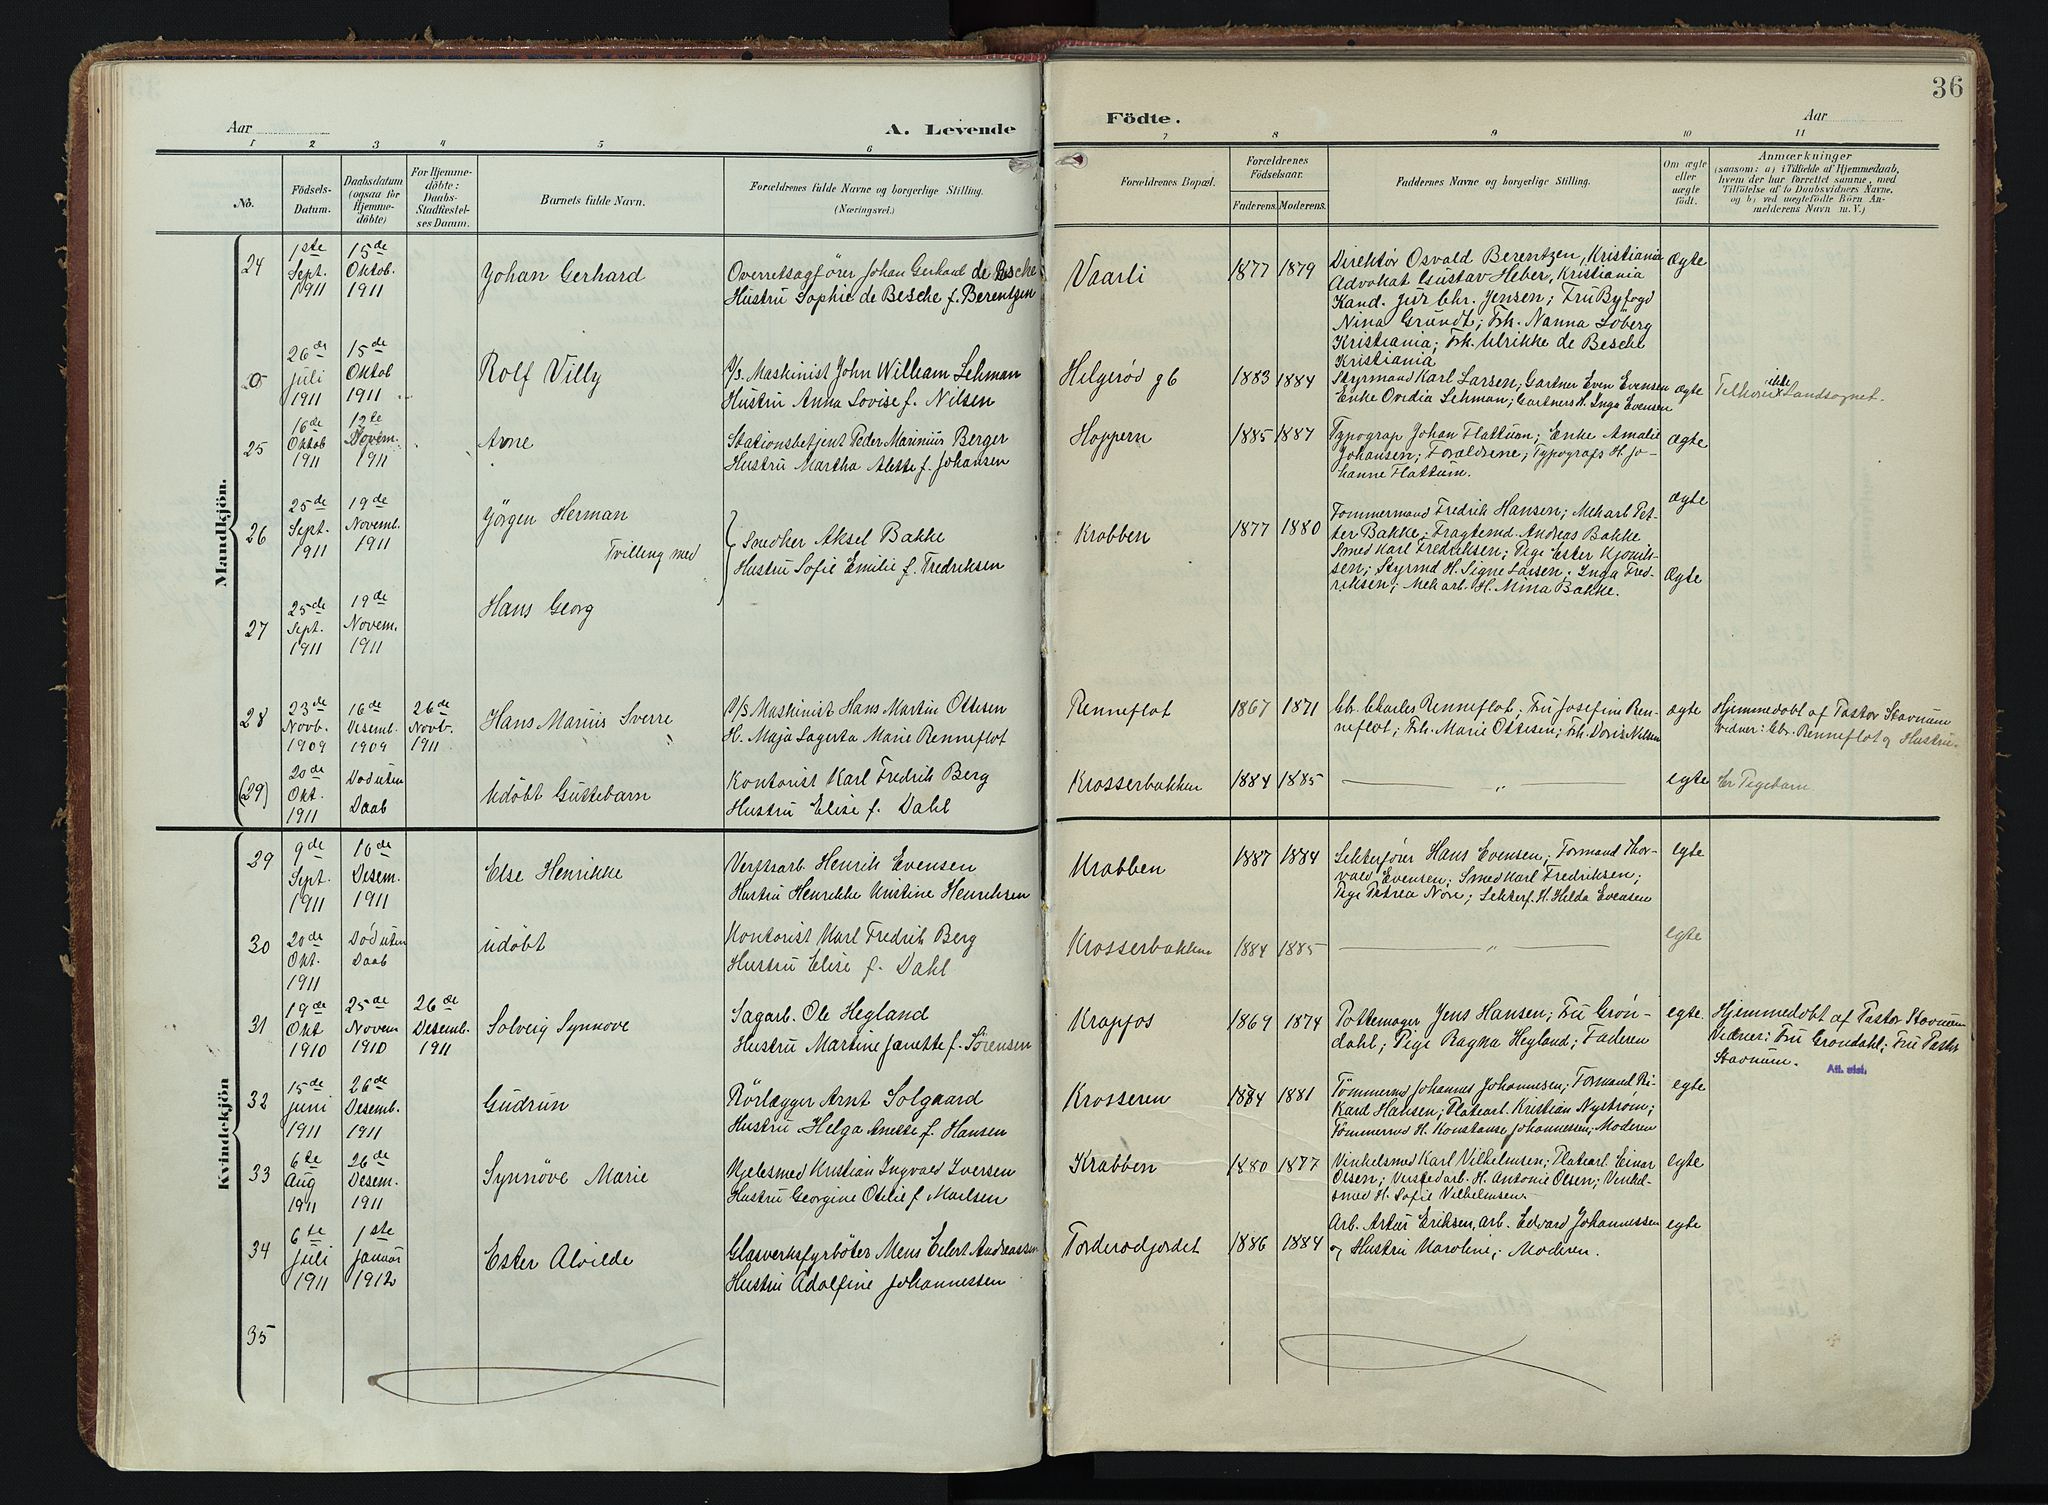 36
Aar
A. Levende
Födte.
Aar
1 2 3 4 5 6 7 8 9 10 11
No.
Födsels-Datum.
Daabsdatum (ogsaa for Hjemmedöbte)
For Hjemmedöbte: Daabs-Stadfæstelses Datum.
Barnets fulde Navn.
Forældrenes fulde Navne og borgerlige Stilling. (Næringsvei.)
Forældrenes Bopæl.
Forældrenes Födselsaar.
Faderens. Moderens.
Faddernes Navne og borgerlige Stilling.
Om ægte eller uægte födt.
Anmærkninger
(saasom: a) i Tilfælde af Hjemmedaab, hvem der har forrettet samme, med Tilföielse af to Daabsvidners Navne, og b) ved uægtefödte Börn Anmelderens Navn m. V.)
Mandkjön.
24
1ste Sept. 1911
15de Oktob. 1911
Johan Gerhard
Overretsagfører Johan Gerhard de Besche
Hustru Sophie de Besche f. Berentzen
Vaarli
1877 1879
Direktør Osvald Berentzen, Kristiania
Advokat Gustav Heber, Kristiania
Kand. jur Chr. Jensen; Fru Byfogd
Nina Grundt; Frk. Nanna Söberg
Kristiania; Frk. Ulrikke de Besche
Kristiania
ægte
26de Juli 1911
15de Oktob 1911
Rolf Villy
P/s. Maskinist John William Lehman
Hustru Anna Lovise f. Nilsen
Helgerød g6
1883 1884
Styrmand Karl Larsen; Gartner Even Evensen
Enke Ovidia Lehman; Gartners H. Inga Evensen
ægte
Tilhører ikke Landsognet.
25
16de Oktob 1911
12te Novem. 1911
Arne
Stationsbetjent Peder Marinius Berger
Hustru Martha Alette f. Johansen
Hoppern
1885 1887
Typograp Johan Flattum; Enke Amalie
Johansen; Forældrene; Typografs H. Jo-
hanne Flattum.
ægte
26
25de Sept. 1911
19de Novemb. 1911
Jörgen Herman
Tvilling med
Snedker Aksel Bakke
Hustru Sofie Emilie f. Fredriksen
Krabben
1877 1880
Tømmermand Fredrik Hansen; Mek arb Pet-
ter Bakke; Fragtemd. Andreas Bakke
Smed Karl Fredriksen; Pige Ester
sen; Styrmd H. Signe Larsen; Inga Fred-
riksen; Mek arb. H. Mina Bakke.
ægte
Ægte
27
25de Sept. 1911
19de Novem. 1911
Hans Georg
28
23de Novb. 1909
16de Desemb. 1909
26de Novb. 1911
Hans Marius Sverre
P/s Maskinist Hans Martin Ottesen
H. Maja Lagerta Marie Renneflot
Renneflot
1867 1871
Chr. Charles Renneflot; Fru Josefine Ren-
neflot; Frk. Marie Ottesen; Frk. Doris Nilsen
ægte
Hjemmedøbt af Pastor Stavnum
vidner: Chr. Renneflot og Hustru.
(29)
20de Okt. 1911
Død uten Daab
Udöbt Guttebarn
Kontorist Karl Fredrik Berg
Hustru Elise f. Dahl
Krosserbakken
1884 1885
— „ —
egte
Er Pigebarn
Kvindekjön
29
9de Sept. 1911
10de Desem. 1911
Else Henrikke
Verftsarb. Henrik Evensen
Hustru Henrikke Kristine Henriksen
Krabben
1887 1884
Lekterfører Hans Evensen; Formand Thor-
vald Evensen; Smed Karl Fredriksen;
Pige Petrea Nøre; Lekterf. H. Hilda Evensen
egte
30
20de Okt. 1911
Død uten Daab
udöbt
Kontorist Karl Fredrik Berg
Hustru Elise f. Dahl
Krosserbakken
1884 1885
— „ —
egte
31
19de Okt 1910
25de Novem 1910
26de Desemb. 1911
Solveig Synnøve
Sagarb. Ole Hegland
Hustru Martine Janette f. Sörensen
Krapfos
1869 1874
Pottemager Jens Hansen; Fru Grøn-
dahl; Pige Ragna Hegland; Faderen
egte.
Hjemmedøbt af Pastor Stavnum
Vidner: Fru Grøndahl; Fru Pastor
Stavnum.
Att. utst.
32
15de Juni 1911
26de Desemb. 1911
Gudrun
Rörlægger Arnt Solgaard
Hustru Helga Anette f. Hansen
Krosseren
1884 1881
Tømmermd Johannes Johannesen; Formand Ri-
kard Hansen; Platearb. Kristian Nystrøm;
Tømmermd H. Konstanse Johannessen; Moderen
egte
33
6te Aug 1911
26de Desem. 1911
Synnöve Marie
Kjelesmed Kristian Ingvald Iversen
Hustru Georgine Otilie f Karlsen
Krabben
1880 1877
Vinkelsmed Karl Vilhelmsen; Platearb. Einar
Olsen; Verstedarb. H. Antonie Olsen; Vinkel-
smed H. Sofie Vilhelmsen.
egte
34
6te Juli 1911
1ste Januar 1912
Ester Alvilde
Glasverksfyrböter Mens Eilert Andreassen
Hustru Adolfine Johannessen
Torderødjordet
1886 1884
Arb. Artur Eriksen, arb. Edvard Johannessen
og Hustru Karoline; Moderen.
egte
35